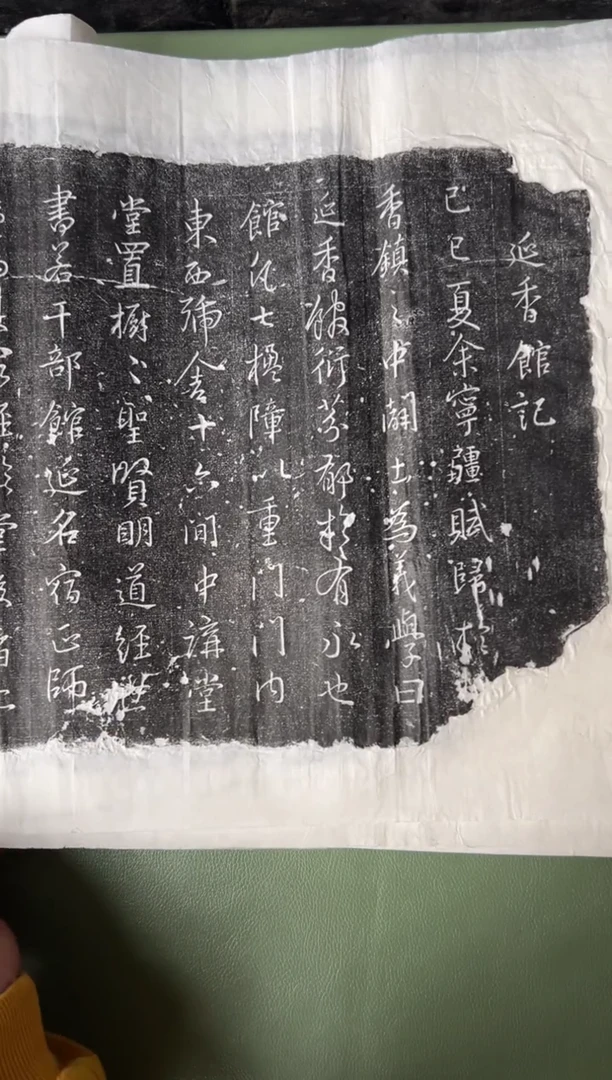 延香館記
已巳夏余寧疆賦歸於
香鎮之中闢土為義學曰
延香馥衍芬郁於有永也
館凡七楹障以重門門内
東西號舍十六間中講堂
堂置櫥櫥聖賢明道經世
書若干部館延名宿正師